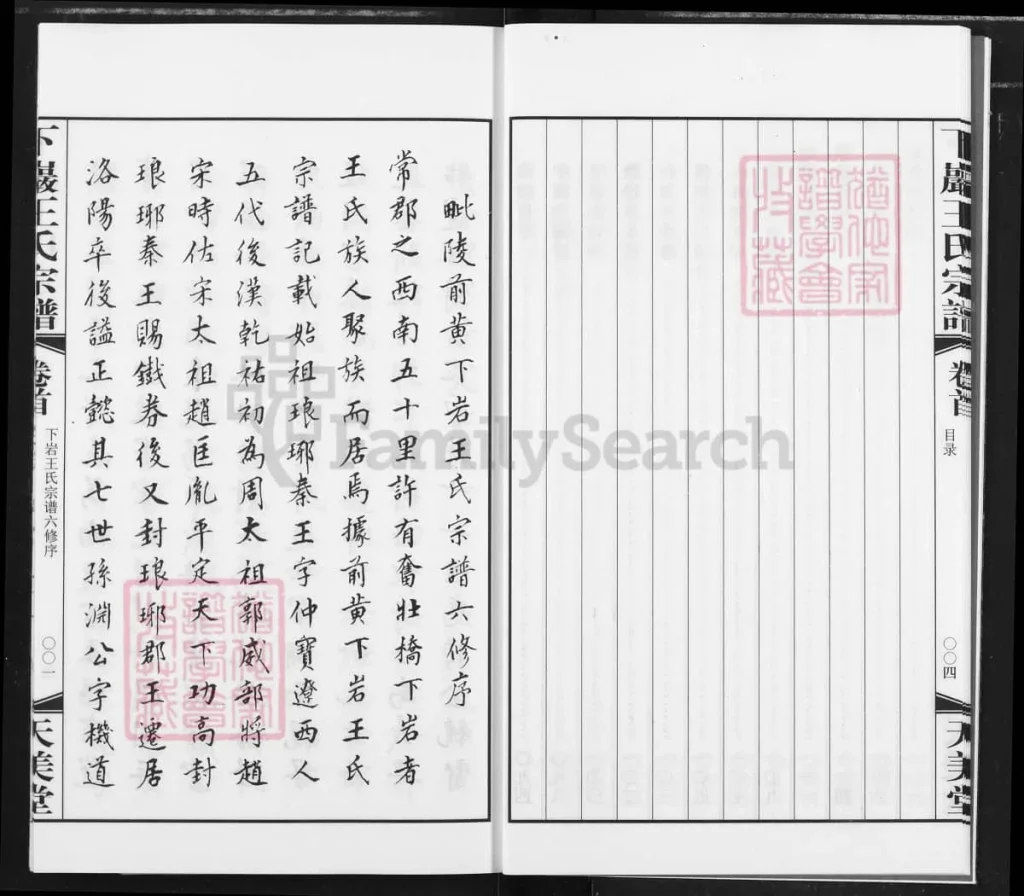 下巖王氏宗譜
卷首
目录
〇〇四
天美堂
猶他家
譜學會
收藏
毗陵前黄下岩王氏宗譜六修序
常郡之西南五十里許有奮壯橋下岩者
王氏族人聚族而居焉據前黄下岩王氏
宗譜記載始祖琅琊秦王字仲寶遼西人
五代後漢乾祐初為周太祖郭威部將趙
宋時佐宋太祖趙匡胤平定天下功高封
琅琊秦王賜鐵券後又封琅琊郡王遷居
洛陽卒後諡正懿其七世孫淵公字機道
猶他家
譜學會
收藏
下巖王氏宗譜
卷首
下岩王氏宗谱六修序
〇〇一
天美堂
FamilySearch